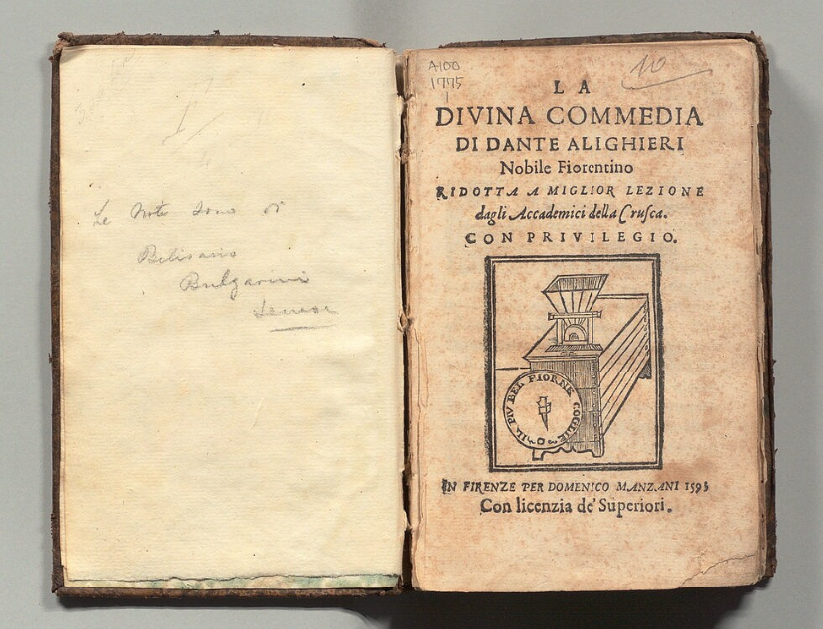 Le Note sono di
Belisario
Bulgarini
A100
1775
1
10
LA
DIVINA COMMEDIA
DI DANTE ALIGHIERI
Nobile Fiorentino
RIDOTTA A MIGLIOR LEZIONE
dagli Accademici della Crusca.
CON PRIVILEGIO.
IL PIV BEL FIOR NE COGLIE
IN FIRENZE PER DOMENICO MANZANI 1595
Con licenzia de' Superiori.